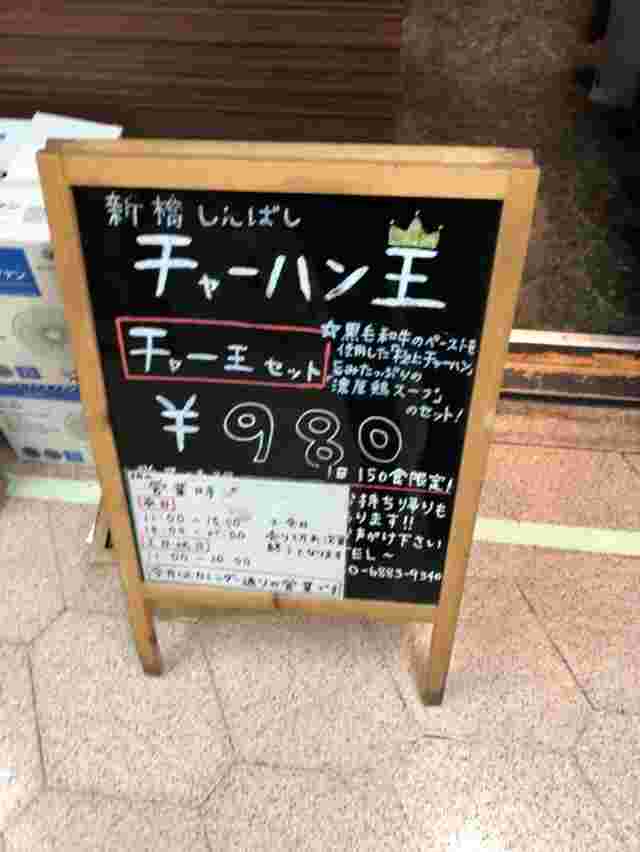 新橋 しんばし
チャーハン王
チャー王 セット
☆黒毛和牛のペーストを
使用した チャーハン
旨みたっぷりの
「濃厚鶏スープ」
のセット!
¥980
1日 150食限定!
営業時
【平日】
11:00
【土日祝日】
11:00
終了となります
持ち帰りも
ります!!
声がけ下さい
EL~
0-6883-9340
今月はカレンダー通りの営業です